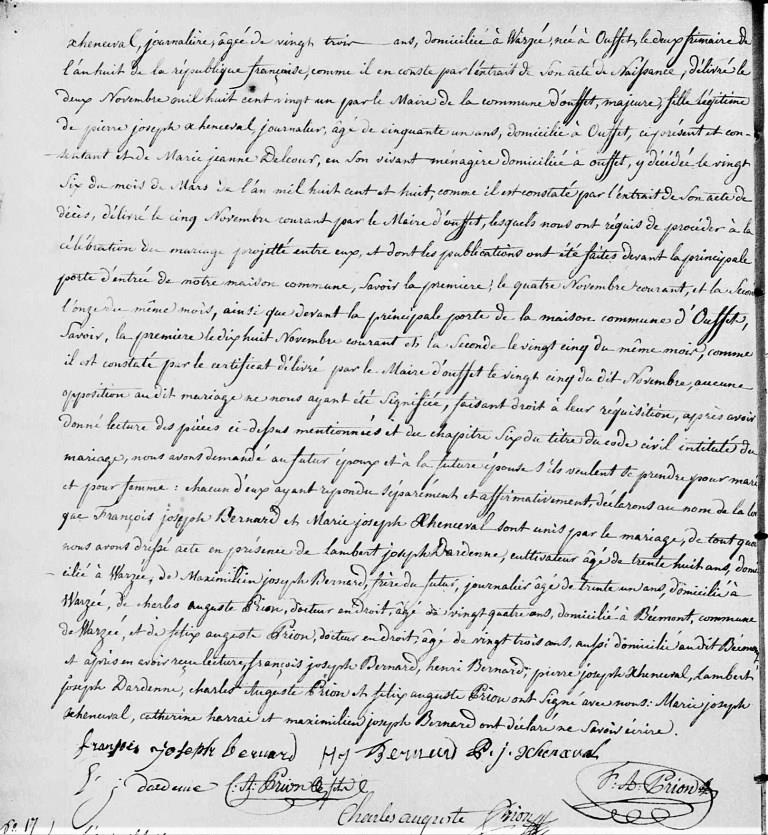 xhenceval, journalière, âgée de vingt trois ans, domiciliée à Warzée, née à Ouffet, le deux frimaire de
l'an huit de la république française, comme il en conste par l'extrait de Son acte de Naissance, délivré le
deux Novembre mil huit cent vingt un par le Maire de la commune d'ouffet, majeure, fille légitime
de pierre joseph xhenceval, journalier, agé de cinquante un ans, domicilié à Ouffet, ci présent et con-
sentant et de Marie jeanne Delcour, en Son vivant ménagère domiciliée à ouffet, y décédée le vingt
Six du mois de Mars de l'an mil huit cent et huit, comme il est constaté par l'extrait de Son acte de
décès, délivré le cinq Novembre courant par le Maire d'ouffet, lesquels nous ont réquis de procéder à la
célébration du mariage projetté entre eux, et dont les publications ont été faites devant la principale
porte d'entrée de notre maison commune, Savoir la premiere le quatre Novembre courant, et la Seconde
l'onze du même mois, ainsi que devant la principale porte de la maison commune d'Ouffet,
Savoir, la premiere le dix huit Novembre courant et la Seconde le vingt cinq du même mois, comme
il est constaté par le certificat délivré par le Maire d'ouffet le vingt cinq du dit Novembre, aucune
opposition au dit mariage ne nous ayant été Signifiée, faisant droit à leur réquisition, après avoir
donné lecture des pièces ci-dessus mentionnées et du chapitre Six du titre du code civil intitulé du
mariage, nous avons demandé au futur époux et à la future épouse s'ils veulent se prendre pour mari
et pour femme : chacun d'eux ayant répondu Séparément et affirmativement, déclarons au nom de la loi
que François joseph Bernard et Marie joseph Xhenceval sont unis par le mariage, de tout quoi
nous avons dressé acte en présence de Lambert joseph Dardenne, cultivateur âgé de trente huit ans, domi-
cilié à Warzée, de Maximilien joseph Bernard, frère du futur, journalier âgé de trente un ans, domicilié à
Warzée, de charles auguste Prion, docteur en droit, âgé de vingt quatre ans, domicilié à Bémont, commune
de Warzée, et de felix auguste Prion, docteur en droit, age de vingt trois ans, aussi domicilié au dit Bémont,
et après en avoir reçu lecture, françois joseph Bernard, henri Bernard, pierre joseph Xhenceval, Lambert
joseph Dardenne, charles Auguste Prion et felix auguste Prion ont Signé avec nous. Marie joseph
Xhenceval, catherine harrai et maximilien joseph Bernard ont déclaré ne Savoir écrire.
françois joseph bernard H J Bernard P. j. xhenceval
L j dardenne C. A. Prion F. A. Prion
Charles auguste Prion
No. 17